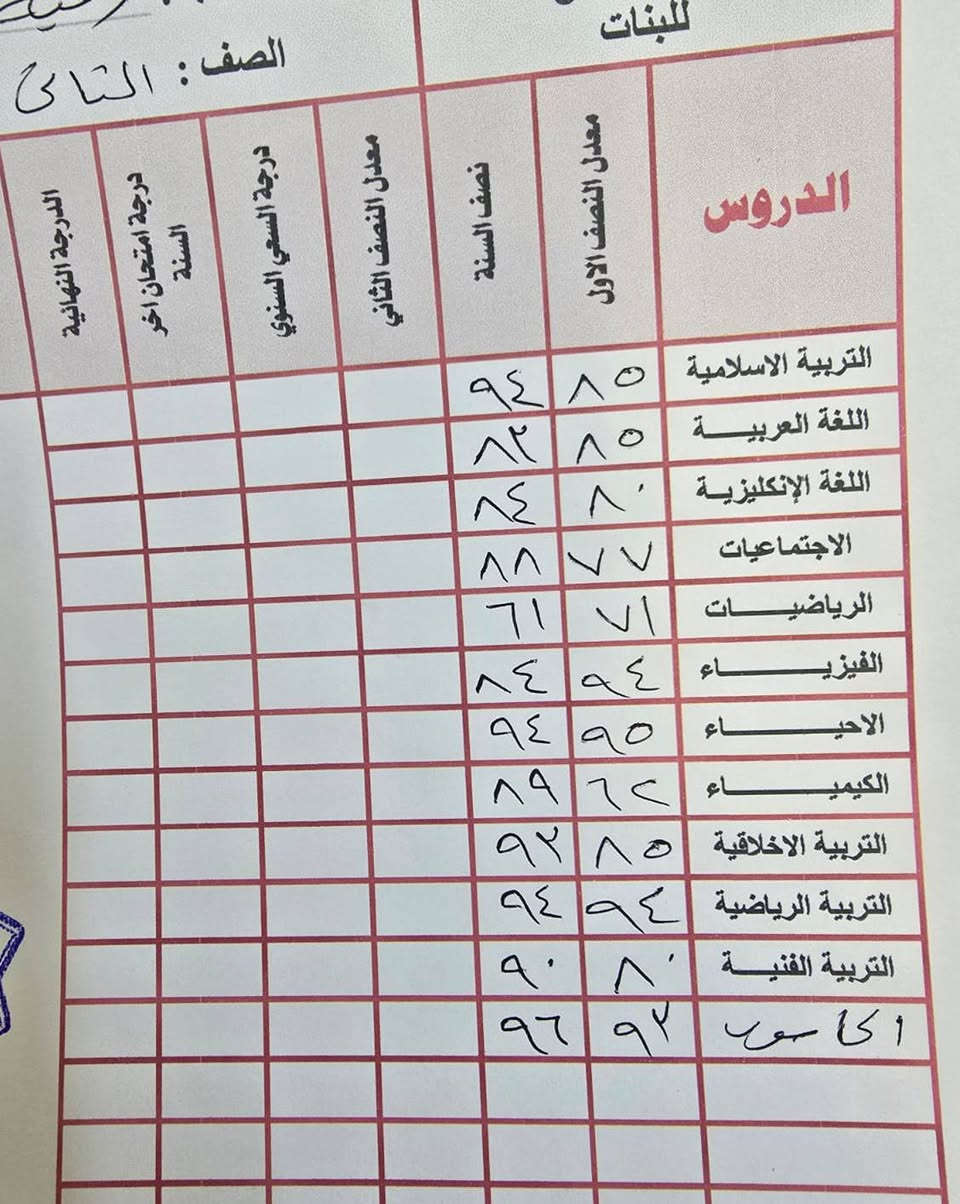 للبنات
الصف : الثاني
الدروس معدل النصف الاول نصف السنة معدل النصف الثاني درجة السعي السنوي درجة امتحان اخر السنة الدرجة النهائية
التربية الاسلامية ٨٥ ٩٤
اللغة العربيـــة ٨٥ ٨٣
اللغة الإنكليزيـة ٨٠ ٨٤
الاجتماعيات ٧٧ ٨٨
الرياضيـــات ٧١ ٦١
الفيزيـــــاء ٩٤ ٨٤
الاحيـــــاء ٩٥ ٩٤
الكيميـــــاء ٦٢ ٨٩
التربية الاخلاقية ٨٥ ٩٣
التربية الرياضية ٩٤ ٩٤
التربية الفنيـــة ٨٠ ٩٠
الحاسوب ٩٣ ٩٦